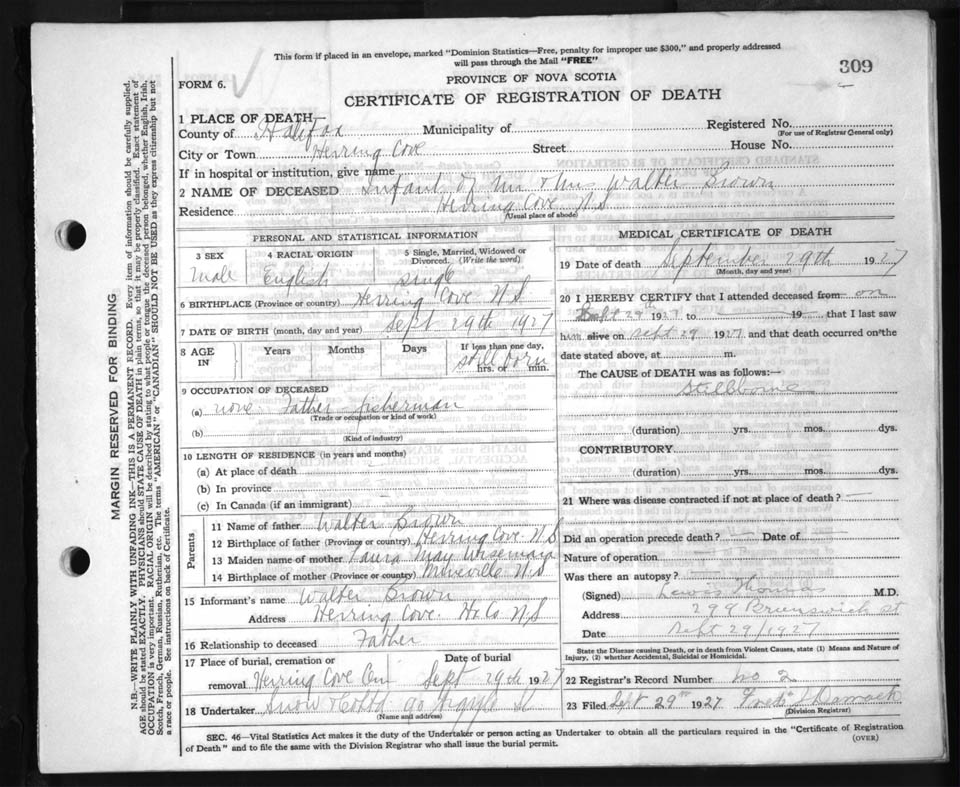 This form if placed in an envelope, marked "Dominion Statistics—Free, penalty for improper use $300," and properly addressed
will pass through the Mail "FREE"
309
FORM 6.
PROVINCE OF NOVA SCOTIA
CERTIFICATE OF REGISTRATION OF DEATH
1 PLACE OF DEATH—
County of Halifax Municipality of Registered No.
(For use of Registrar General only)
City or Town Herring Cove Street House No.
If in hospital or institution, give name
2 NAME OF DECEASED Infant of Mr & Mrs Walter Brown
Residence Herring Cove N.S
(Usual place of abode)
PERSONAL AND STATISTICAL INFORMATION
3 SEX 4 RACIAL ORIGIN 5 Single, Married, Widowed or
Divorced. (Write the word)
Male English single
6 BIRTHPLACE (Province or country) Herring Cove N.S
7 DATE OF BIRTH (month, day and year) Sept 29th 1927
8 AGE IN Years Months Days If less than one day,
still born
hrs. or min.
9 OCCUPATION OF DECEASED
(a) none Father fisherman
(Trade or occupation or kind of work)
(b)
(Kind of industry)
10 LENGTH OF RESIDENCE (in years and months)
(a) At place of death
(b) In province
(c) In Canada (if an immigrant)
Parents
11 Name of father Walter Brown
12 Birthplace of father (Province or country) Herring Cove N S
13 Maiden name of mother Laura May Wiseman
14 Birthplace of mother (Province or country) N.S
15 Informant's name Walter Brown
Address Herring Cove Hx Co N S
16 Relationship to deceased Father
17 Place of burial, cremation or Date of burial
removal Herring Cove Sept 29th 1927
18 Undertaker Snow 90 Argyle St
(Name and address)
MEDICAL CERTIFICATE OF DEATH
19 Date of death September 29th 1927
(Month, day and year)
20 I HEREBY CERTIFY that I attended deceased from on
Sept 29th 1927 to 19 that I last saw
h alive on Sept 29 1927 and that death occurred on the
date stated above, at m.
The CAUSE of DEATH was as follows:—
Stillborne
(duration) yrs. mos. dys.
CONTRIBUTORY
(duration) yrs. mos. dys.
21 Where was disease contracted if not at place of death?
Did an operation precede death? Date of
Nature of operation
Was there an autopsy?
(Signed) Lewis Thomas M.D.
Address 299 Brunswick st
Date Sept 29/1927
State the Disease causing Death, or in death from Violent Causes, state (1) Means and Nature of
Injury, (2) whether Accidental, Suicidal or Homicidal.
22 Registrar's Record Number no 2
23 Filed Sept 29th 1927
(Division Registrar)
SEC. 46—Vital Statistics Act makes it the duty of the Undertaker or person acting as Undertaker to obtain all the particulars required in the "Certificate of Registration
of Death" and to file the same with the Division Registrar who shall issue the burial permit. (OVER)
MARGIN RESERVED FOR BINDING
N.B.—WRITE PLAINLY WITH UNFADING INK—THIS IS A PERMANENT RECORD. Every item of information should be carefully supplied.
AGE should be stated EXACTLY. PHYSICIANS should STATE CAUSE OF DEATH in plain terms, so that it may be properly classified. Exact statement of
OCCUPATION is very important. RACIAL ORIGIN will be described by stating to what people or tongue the deceased person belonged, whether English, Irish,
Scotch, French, German, Russian, Ruthenian, etc. The terms "AMERICAN" or "CANADIAN" SHOULD NOT BE USED as they express citizenship but not
a race or people. See instructions on back of Certificate.